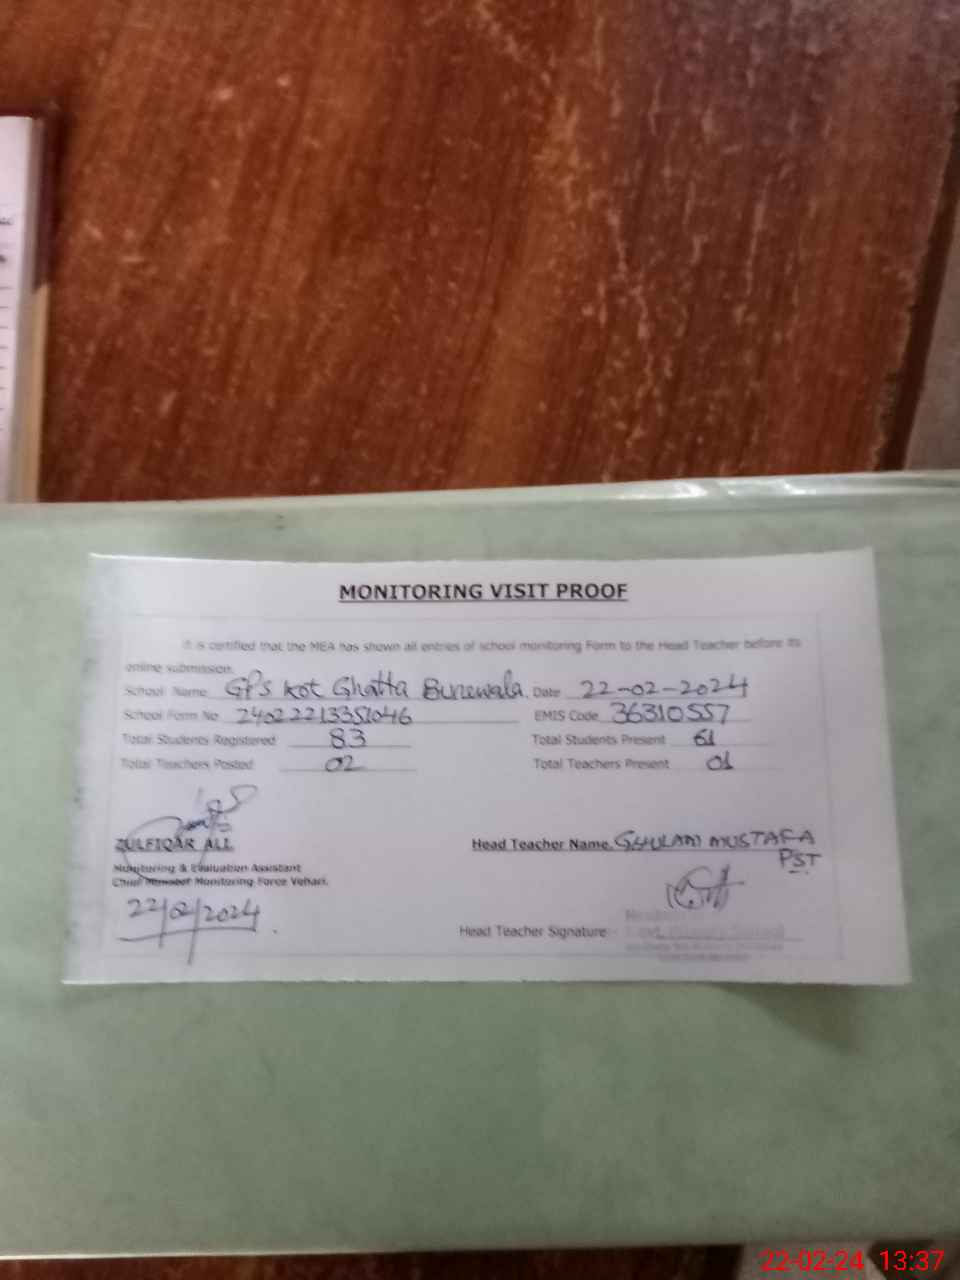 MONITORING VISIT PROOF
It is certified that the MEA has shown all entries of school monitoring Form to the Head Teacher before its
online submission.
School Name GPS Kot Ghatta Burewala. Date 22-02-2024
School Form No 24022213351046 EMIS Code 36310557
Total Students Registered 83 Total Students Present 61
Total Teachers Posted 02 Total Teachers Present 01
ZULFIQAR ALI
Head Teacher Name. GHULAM MUSTAFA
PST
Monitoring & Evaluation Assistant
Chief Minister Monitoring Force Vehari.
22/02/2024
Head Teacher Signature
22-02-24 13:37